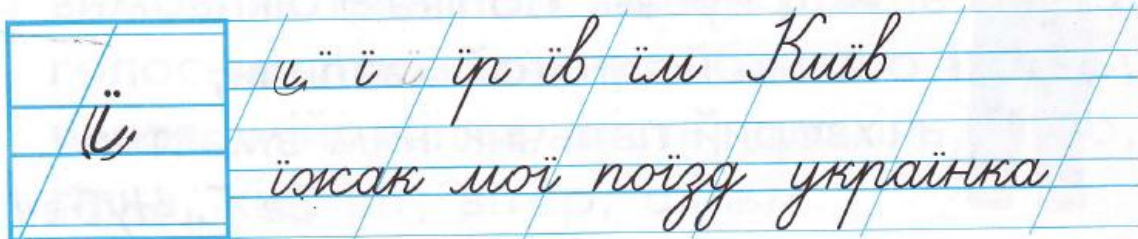 ї
ї ї ї їр їв їм Київ
їжак мої поїзд українка